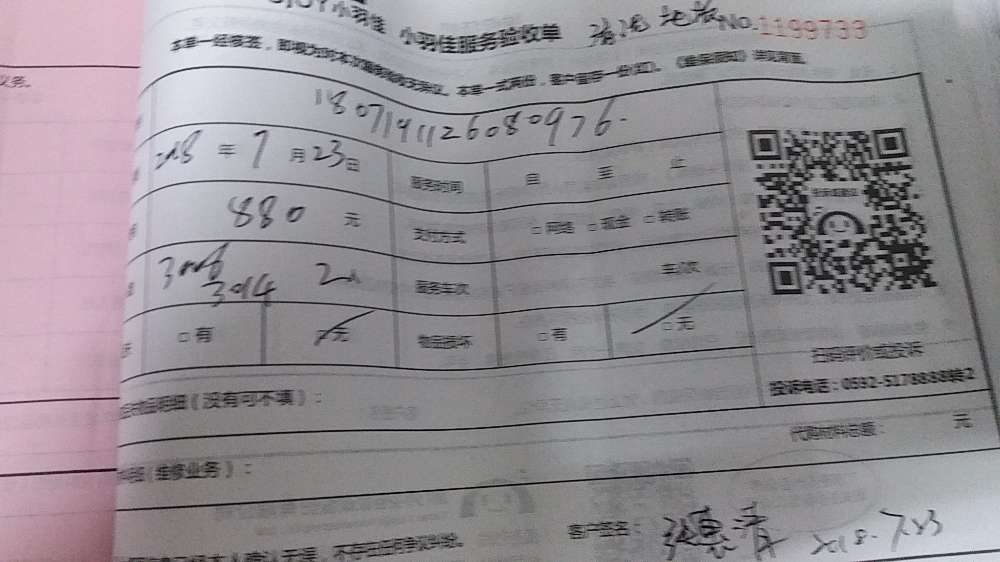 小羽佳 小羽佳服务验收单 清洗地板 No.1199733
本单一经修签,即视为对本次服务验收无异议。本单一式两份,客户留存一份(红)。《维保须知》详见背面。
1807191126080976.
2018 年 7 月 23 日 服务时间 自 至 止
880 元 支付方式 □ 网络 □ 现金 □ 转账
3008 3014 2人 服务车次 车/次
□ 有 □ 无 物品损坏 □ 有 □ 无
扫码评价或投诉
投诉电话:0592-5178888转2
物品明细(没有可不填):
代购材料总额: 元
(维修业务):
客户签名: 张惠清 2018.7.23
确认无误,不存在任何争议纠纷。